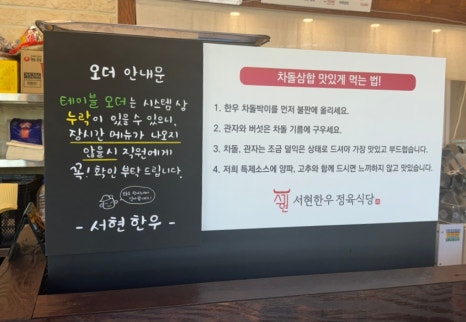 오더 안내문
테이블 오더는 시스템 상
누락이 있을 수 있으니,
잠시간 메뉴가 나오지
않을시 직원에게
꼭! 확인 부탁드립니다.
- 서현한우 -
차돌삼합 맛있게 먹는 법!
1. 한우 차돌박이를 먼저 불판에 올리세요.
2. 관자와 버섯은 차돌 기름에 구우세요.
3. 차돌, 관자는 조금 덜익은 상태로 드셔야 가장 맛있고 부드럽습니다.
4. 저희 특제소스에 양파, 고추와 함께 드시면 느끼하지 않고 맛있습니다.
서현한우 정육식당